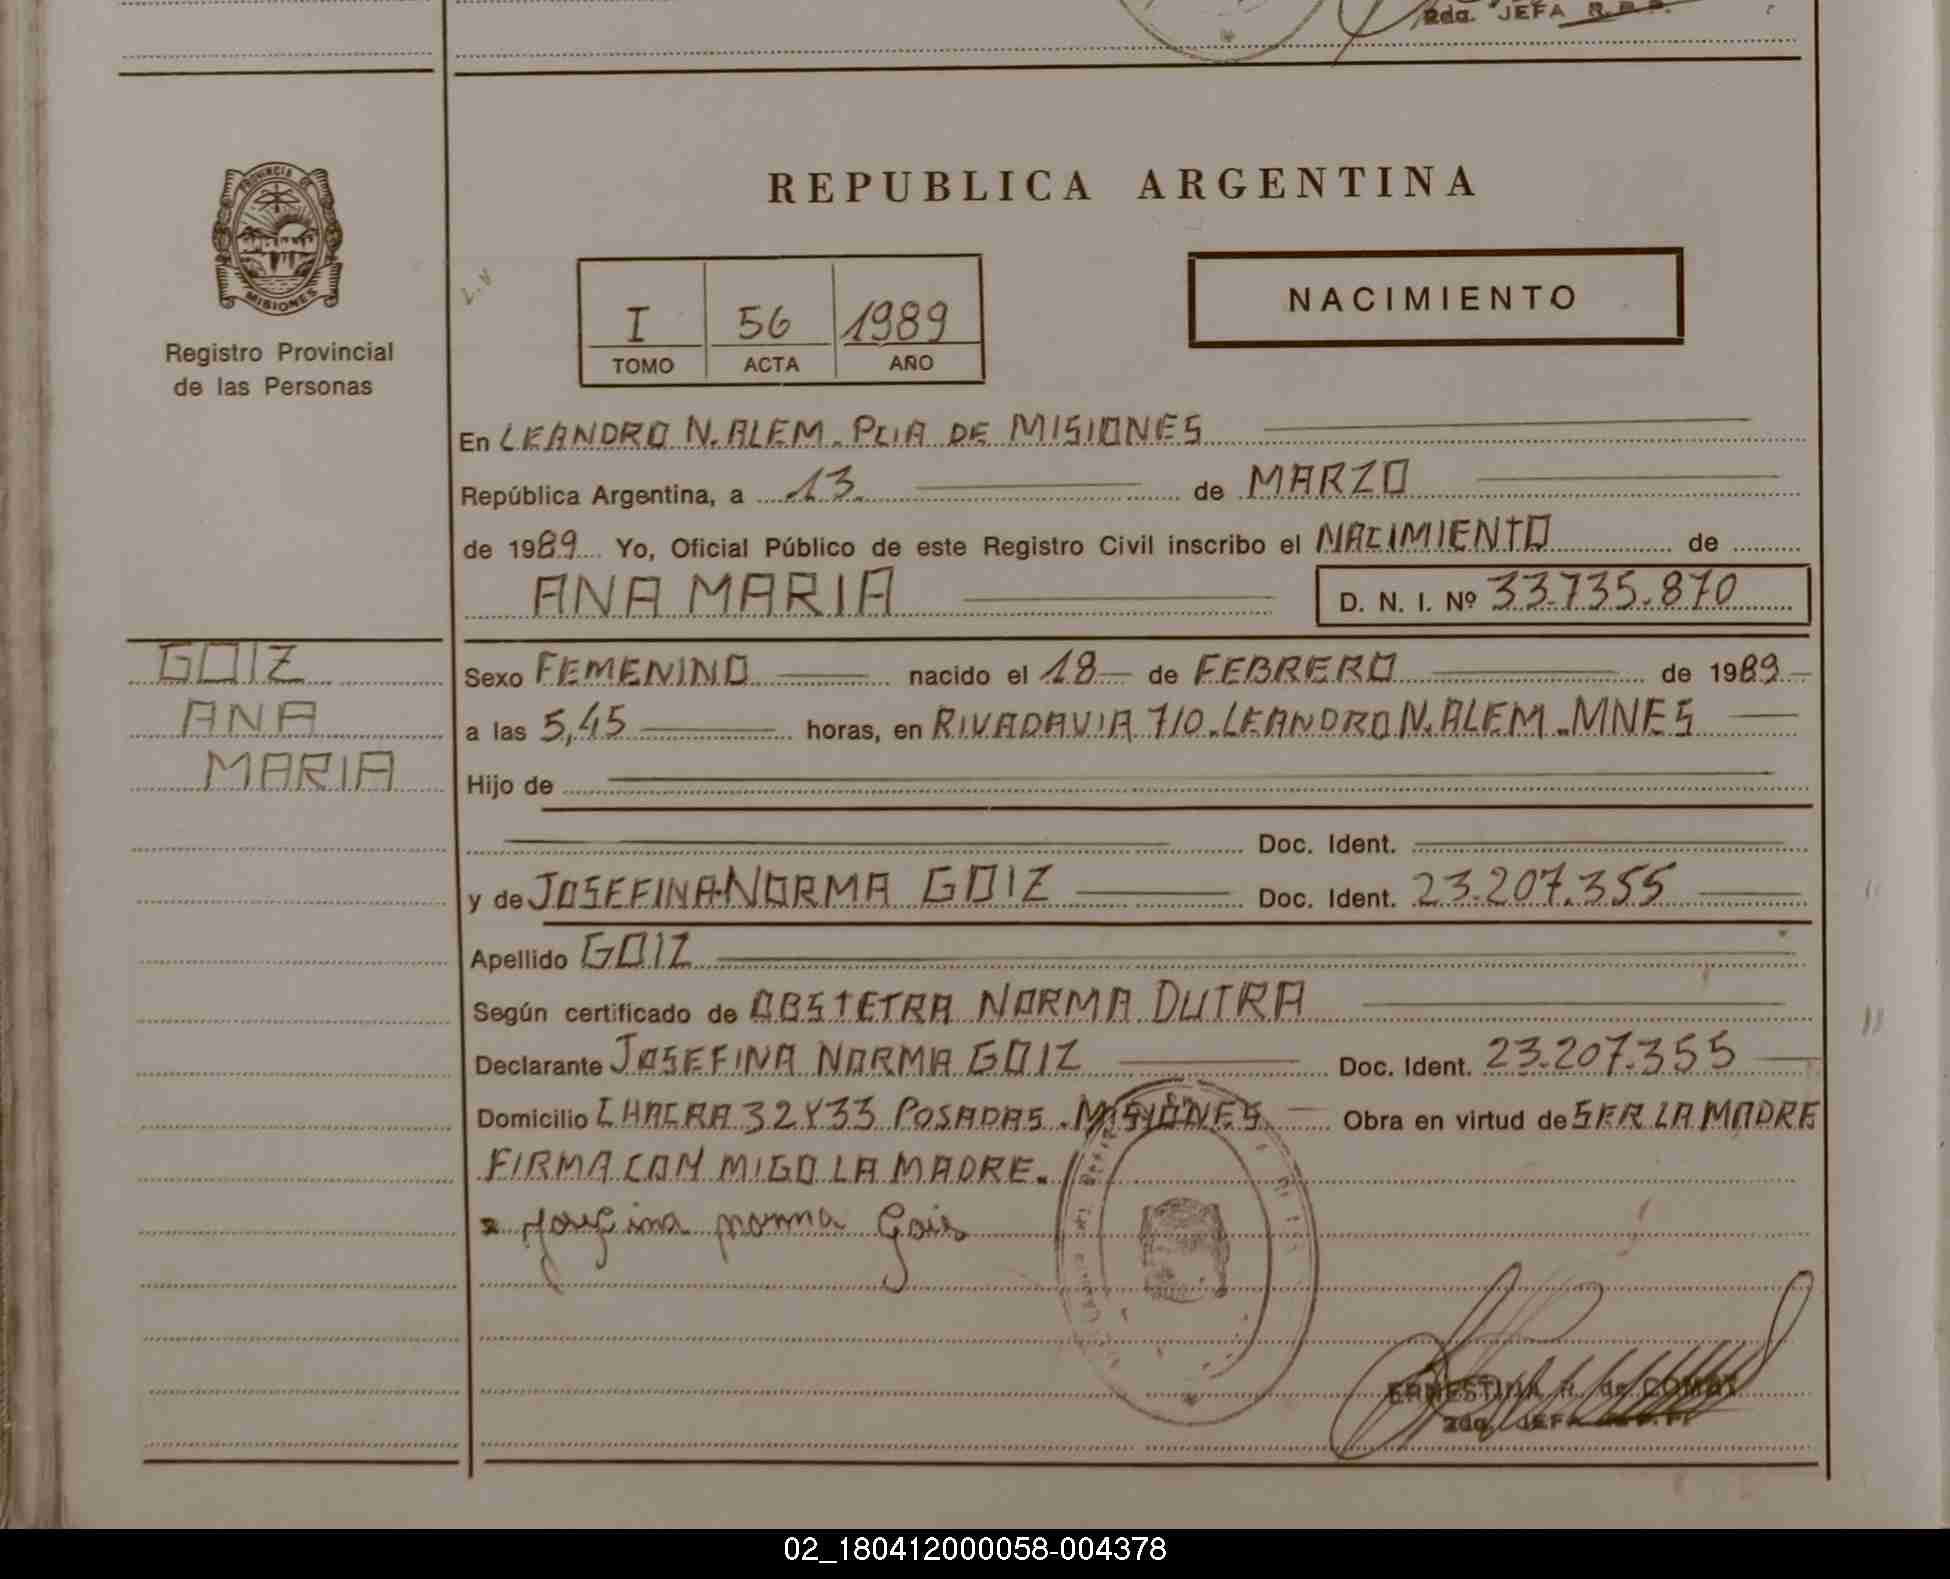 2da. JEFA R.P.P.
PROVINCIA DE
MISIONES
Registro Provincial
de las Personas
REPUBLICA ARGENTINA
I 56 1989
TOMO ACTA AÑO
NACIMIENTO
En LEANDRO N. ALEM. PCIA DE MISIONES
República Argentina, a 13 de MARZO
de 1989 Yo, Oficial Público de este Registro Civil inscribo el NACIMIENTO de
ANA MARIA D. N. I. Nº 33.735.870
GOIZ
ANA
MARIA
Sexo FEMENINO nacido el 18 de FEBRERO de 1989
a las 5,45 horas, en RIVADAVIA 710. LEANDRO N. ALEM. MNES
Hijo de
Doc. Ident.
y de JOSEFINA NORMA GOIZ Doc. Ident. 23.207.355
Apellido GOIZ
Según certificado de OBSTETRA NORMA DUTRA
Declarante JOSEFINA NORMA GOIZ Doc. Ident. 23.207.355
Domicilio CHACRA 32 Y 33 POSADAS. MISIONES Obra en virtud de SER LA MADRE
FIRMA CON MIGO LA MADRE.
Josefina norma Goiz
ERNESTINA R. de
2da. JEFA
02_180412000058-004378